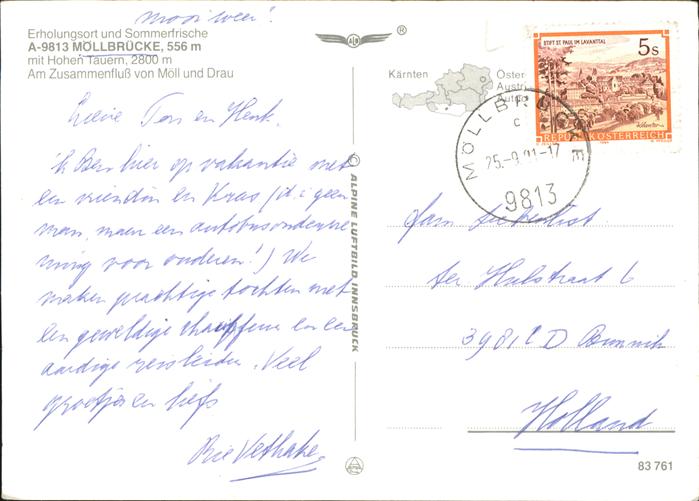 mooi weer!
Erholungsort und Sommerfrische
A-9813 MÖLLBRÜCKE, 556 m
mit Hohen Tauern, 2800 m
Am Zusammenfluß von Möll und Drau
Lieve Ton en Henk,
ik Ben hier op vakantie met
een vriendin en Kras (it is geen
man, maar een autobusonderne
ming voor ouderen!) We
maken prachtige tochten met
een geweldige chauffeur en een
aardige reisleider. Veel
groetjes en liefs
Rie
© ALPINE LUFTBILD, INNSBRUCK
Kärnten
Öster
Austri
STIFT ST. PAUL IM LAVANTTAL
5s
REPUBLIK ÖSTERREICH
MÖLLBRÜCKE
c
25.-9.91-17
9813
Fam
ter Hulstraat 6
3981 D Bunnik
Holland
83 761